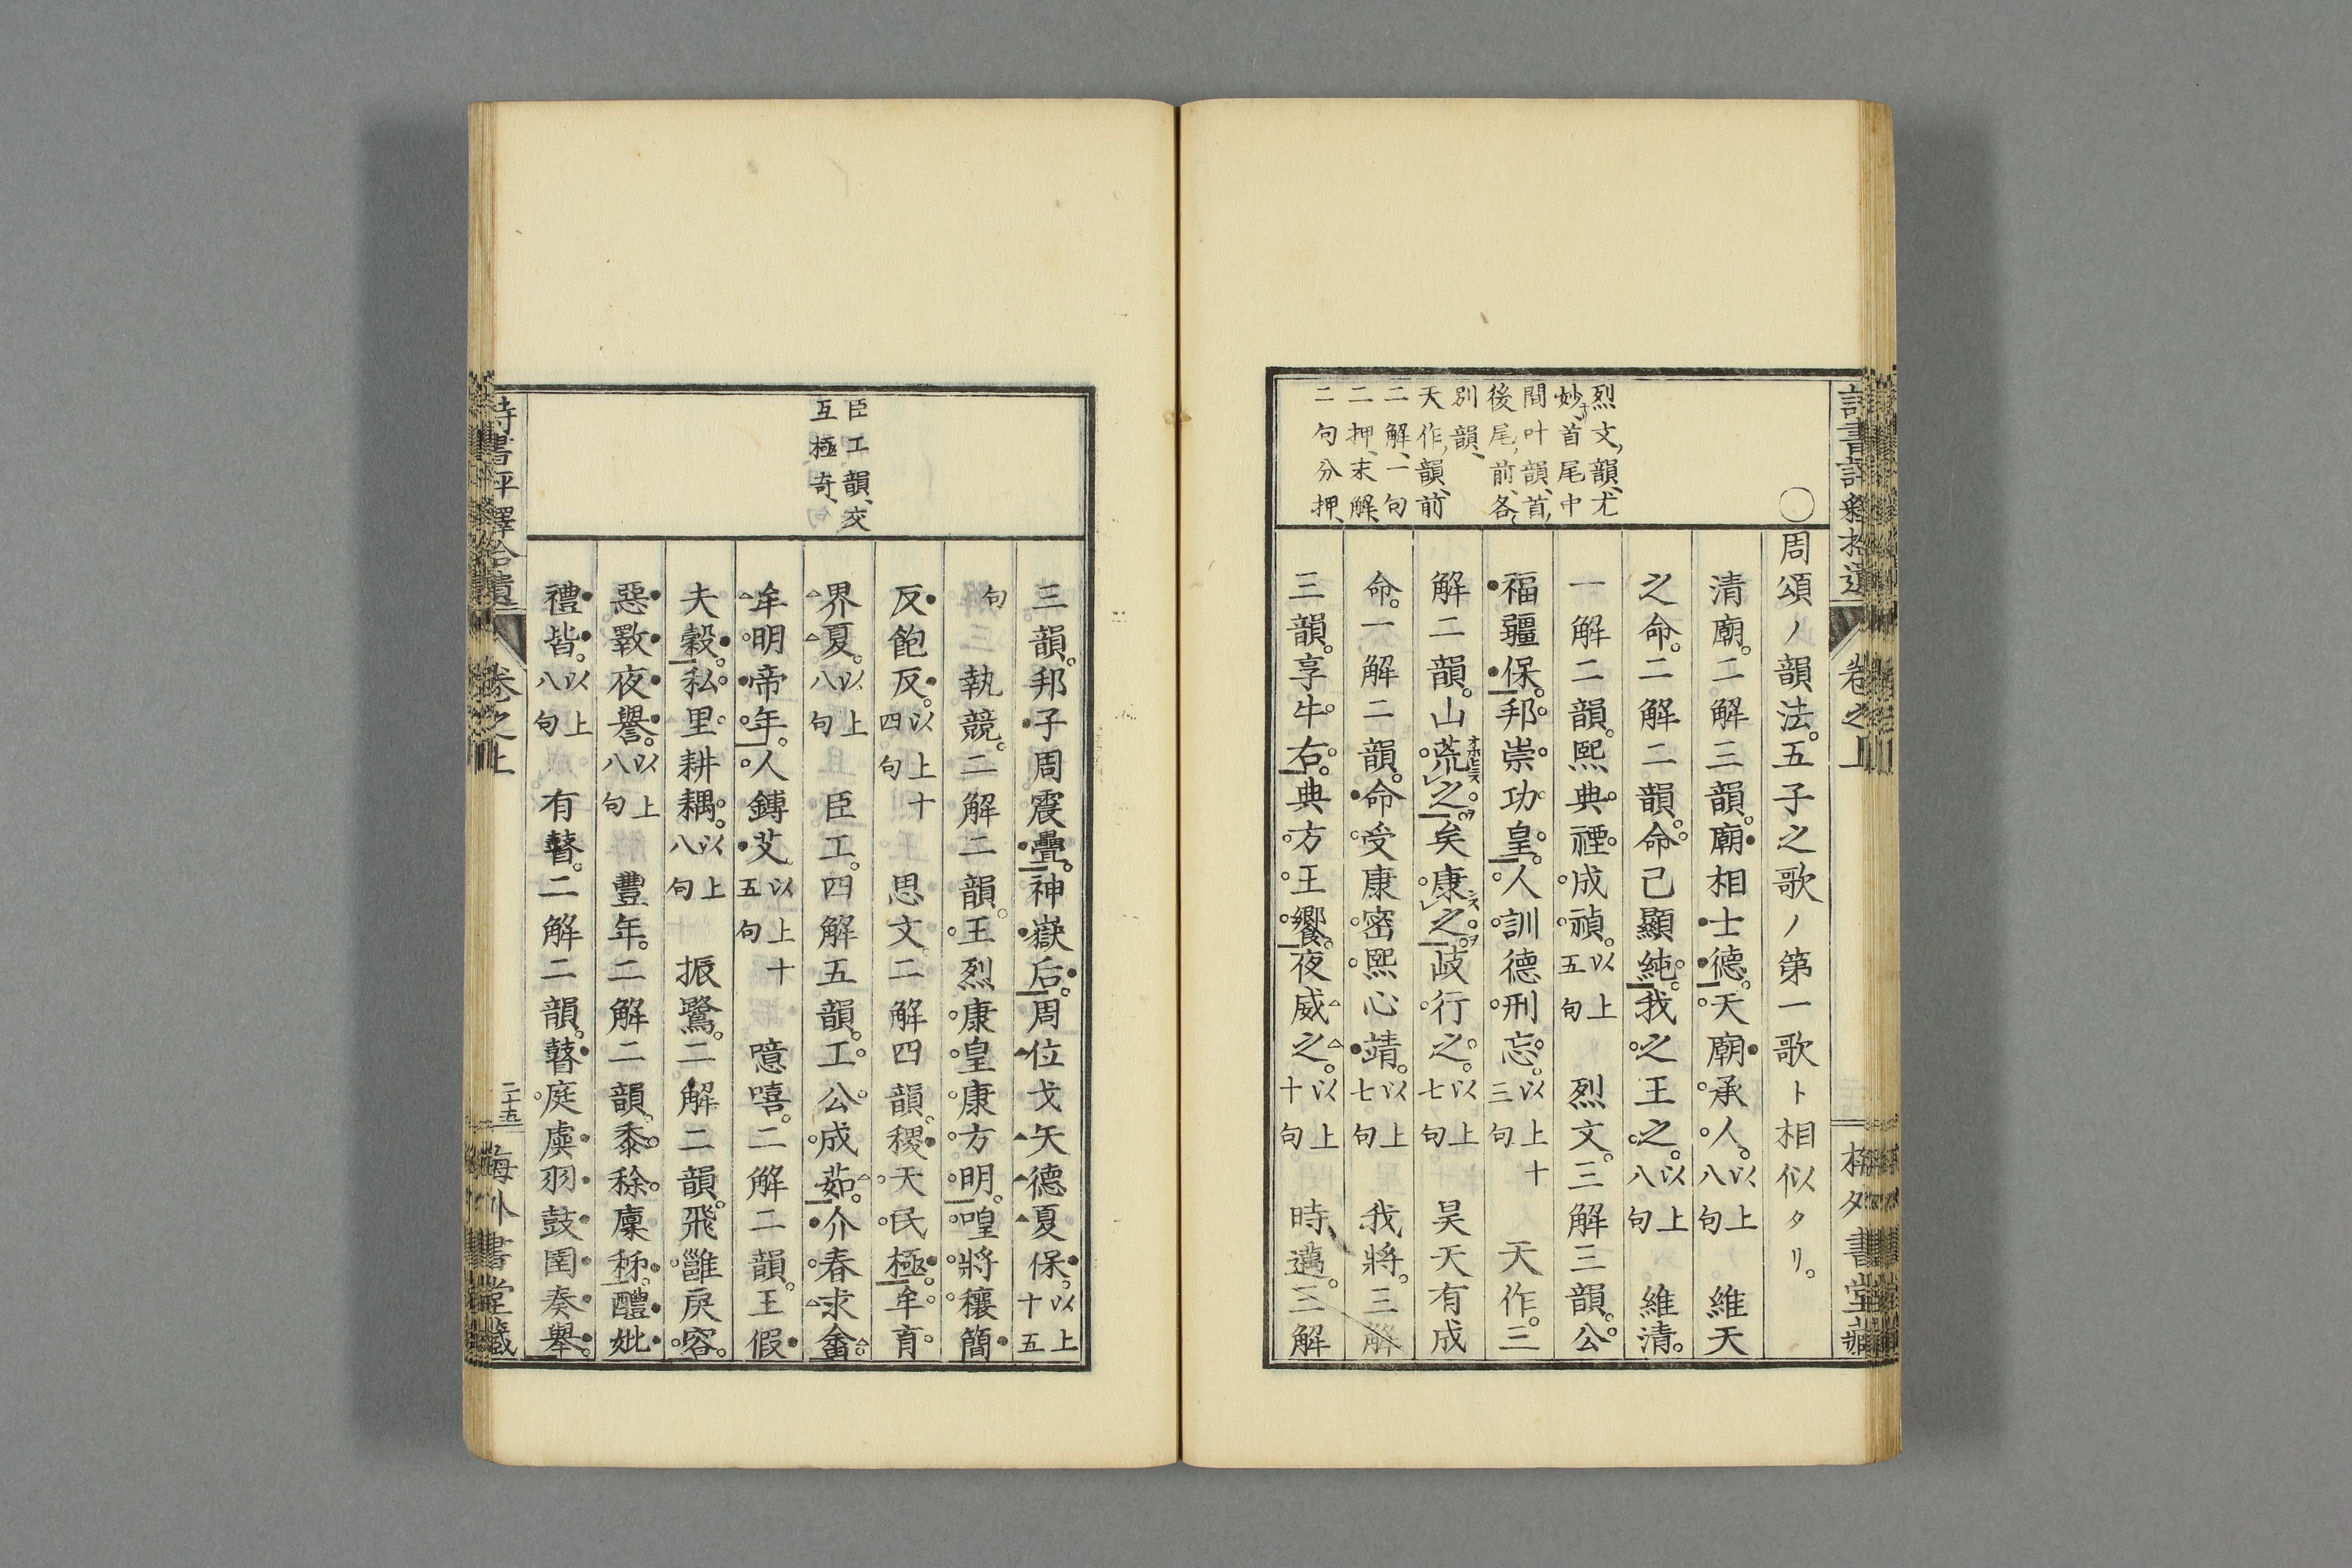 烈文、韻、尤
妙、首尾中
間叶韻、首、
後尾、前、各、
別韻、
天作、韻、前
二解、一句
二押、末解、
二句分押、
〇周頌ノ韻法。五子之歌ノ第一歌ト相似タリ。
清廟。二解三韻。廟相士德。天廟承人。以上八句 維天
之命。二解二韻。命己顯純。我之王之。以上八句 維清。
一解二韻。熙典禋成禎。以上五句 烈文。三解三韻。公
福疆保。邦崇功皇。人訓德刑忘。以上十三句 天作。三
解二韻。山荒之。矣康之。岐行之。以上七句 昊天有成
命。一解二韻。命受康密熙心靖。以上七句 我將。三解
三韻。享牛右。典方王饗。夜威之。以上十句 時邁。三解
臣工韻、交
互極奇、
三韻。邦子周震疊。神嶽后。周位戈矢德夏保。以上十五
句 執競。二解二韻。王烈康皇康方明。喤將穰簡
反飽反。以上十四句 思文。二解四韻。稷天民極。牟育
界夏。以上八句 臣工。四解五韻。工公成茹。介春求畬
牟明帝年。人鎛艾。以上十五句 噫嘻。二解二韻。王假
夫穀。私里耕耦。以上八句 振鷺。二解二韻。飛雝戾容。
惡斁夜譽。以上八句 豐年。二解二韻。黍稌廩秭。醴妣
禮皆。以上八句 有瞽。二解二韻。瞽庭虡羽鼓圉奏舉。
卷之上
二十五